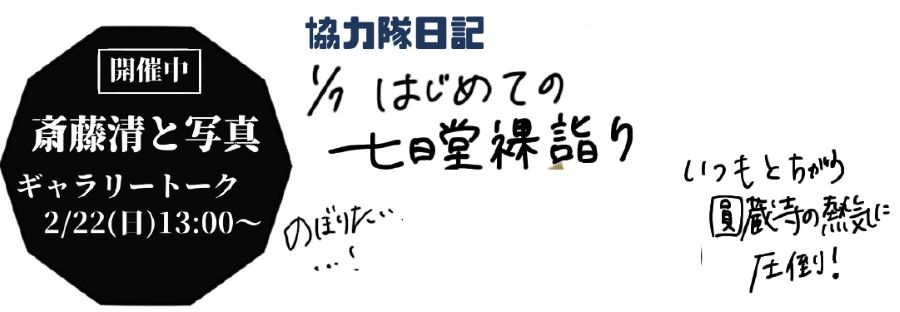 開催中
斎藤清と写真
ギャラリートーク
2/22(日)13:00〜
協力隊日記
1/7 はじめての
七日堂裸詣り
のぼりたい
...!
いつもとちがう
圓蔵寺の熱気に
圧倒!